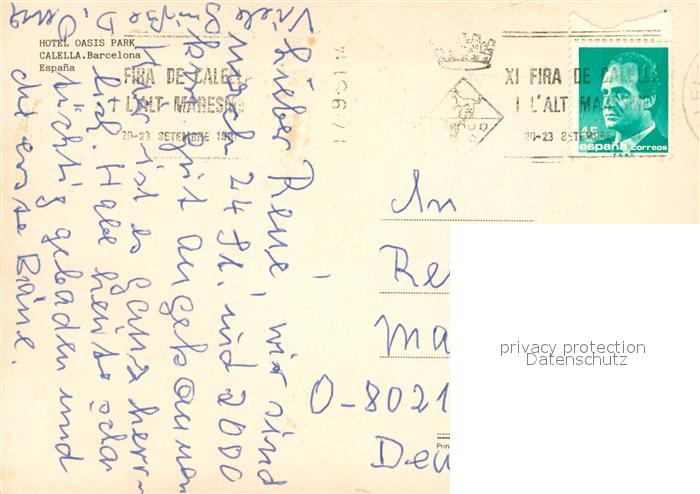 HOTEL OASIS PARK
CALELLA.Barcelona
España
FIRA DE CALELL
I L'ALT MARESME
20-23 SETEMBRE 1991
17.9.91.14
XI FIRA DE CALELLA
I L'ALT MARESME
20-23 SETEMBRE
45
españa correos
Lieber René, wir sind
nach 24 St. und 2000
gut angekommen
Hier ist es ganz herr-
lich. Habe heute
tüchtig gebadet und
die erste Bräune.
Viele
An
Re
Ma
O-8021
Deu
privacy protection
Datenschutz